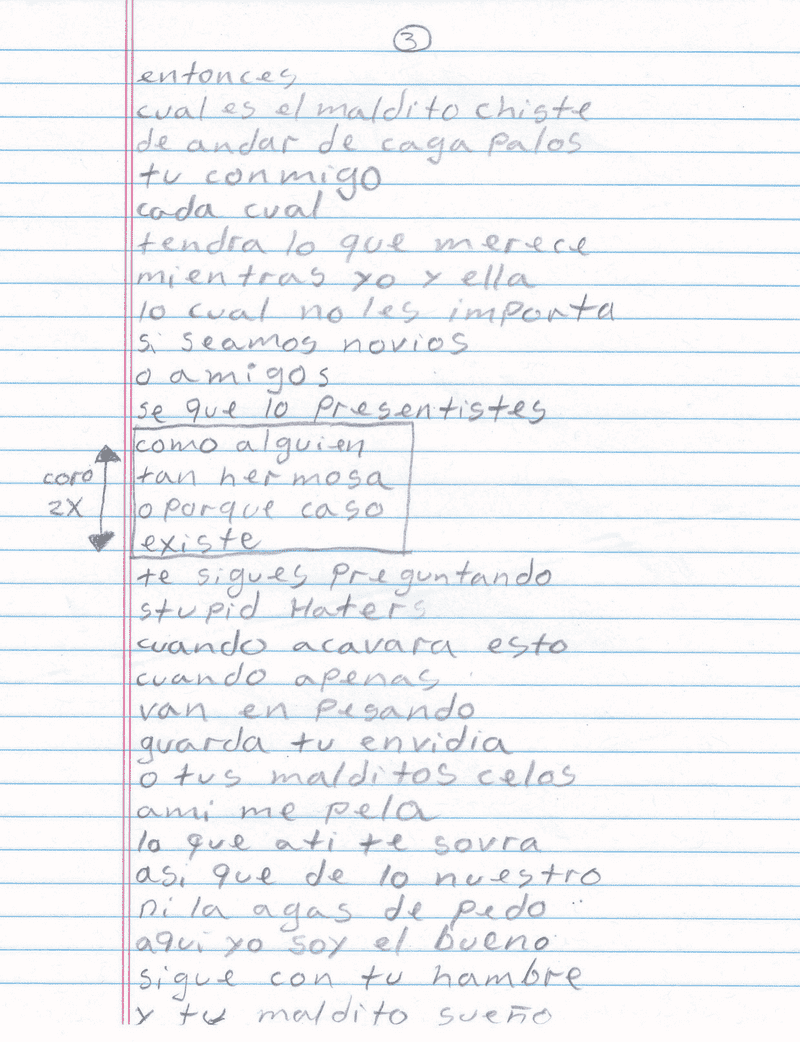 3
entonces
cual es el maldito chiste
de andar de caga palos
tu conmigo
cada cual
tendra lo que merece
mientras yo y ella
lo cual no les importa
si seamos novios
o amigos
se que lo presentistes
como alguien
tan hermosa
o porque caso
existe
coro
2X
te sigues preguntando
stupid Haters
cuando acavara esto
cuando apenas
van en pesando
guarda tu envidia
o tus malditos celos
ami me pela
lo que ati te sovra
asi que de lo nuestro
ni la agas de pedo
aqui yo soy el bueno
sigue con tu hambre
y tu maldito sueño